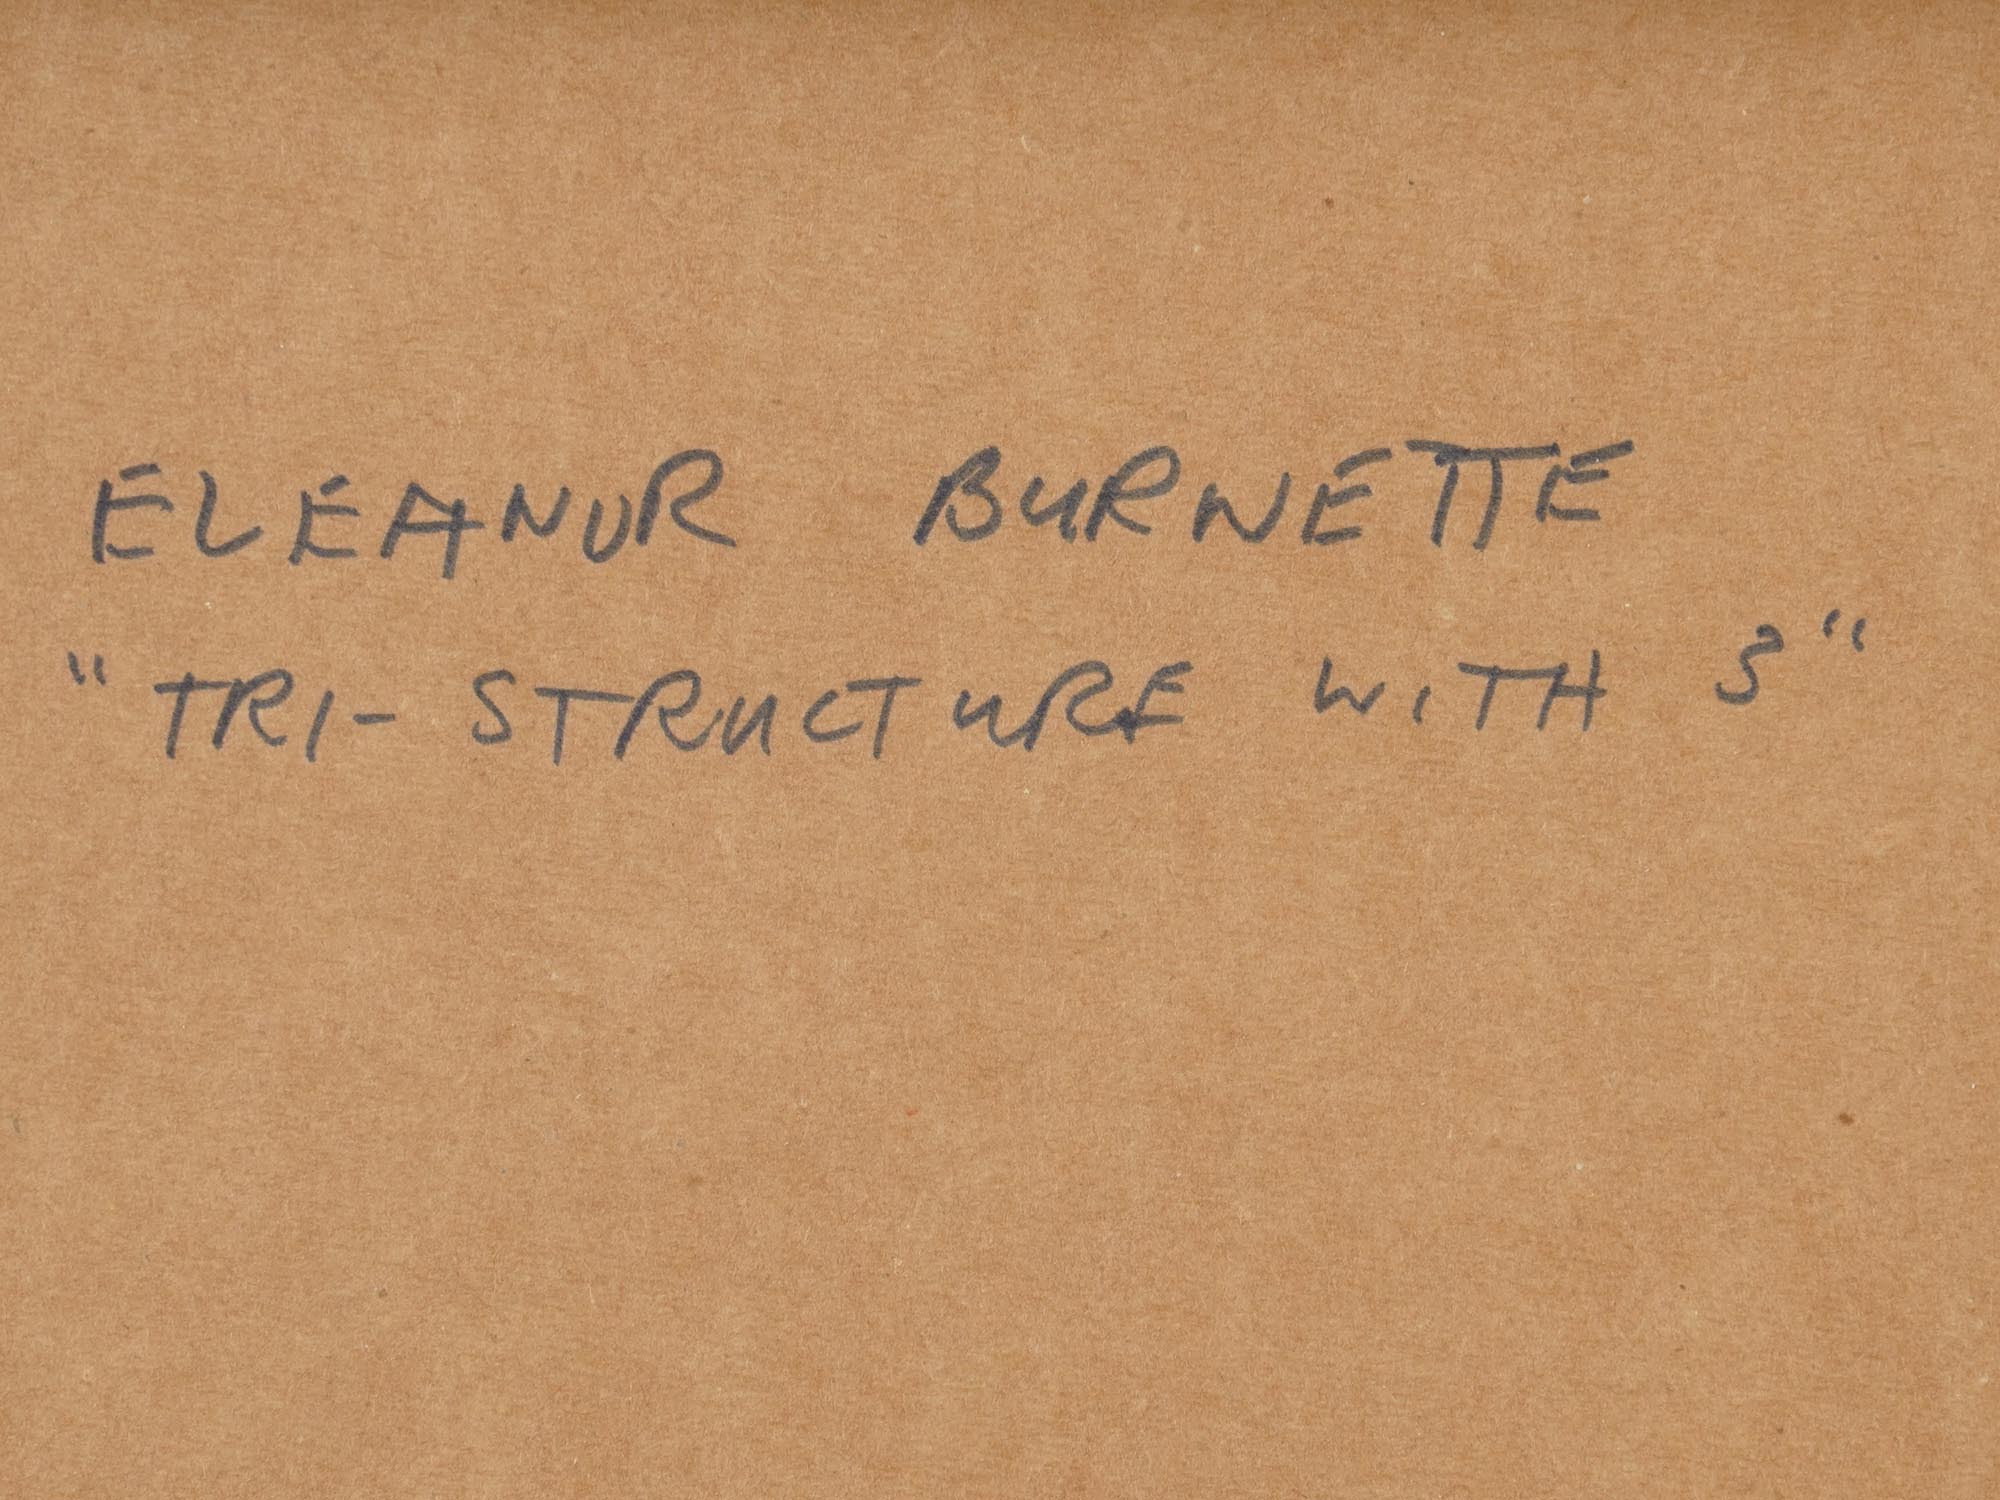 ELEANOR BURNETTE
"TRI-STRUCTURE WITH 3"